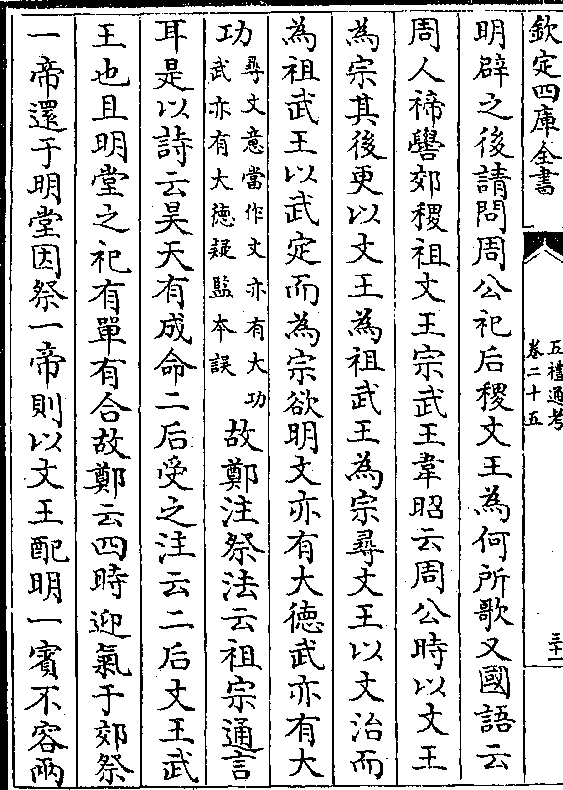 欽定四庫全書
五禮通考
卷二十五
三十一
明辟之後請問周公祀后稷文王為何所歌又國語云
周人禘嚳郊稷祖文王宗武王韋昭云周公時以文王
為宗其後更以文王為祖武王為宗尋文王以文治而
為祖武王以武定而為宗欲明文亦有大徳武亦有大
功
尋文意當作文亦有大功
武亦有大徳疑監本誤
故鄭注祭法云祖宗通言
耳是以詩云昊天有成命二后受之注云二后文王武
王也且明堂之祀有單有合故鄭云四時迎氣于郊祭
一帝還于明堂因祭一帝則以文王配明一賓不容兩